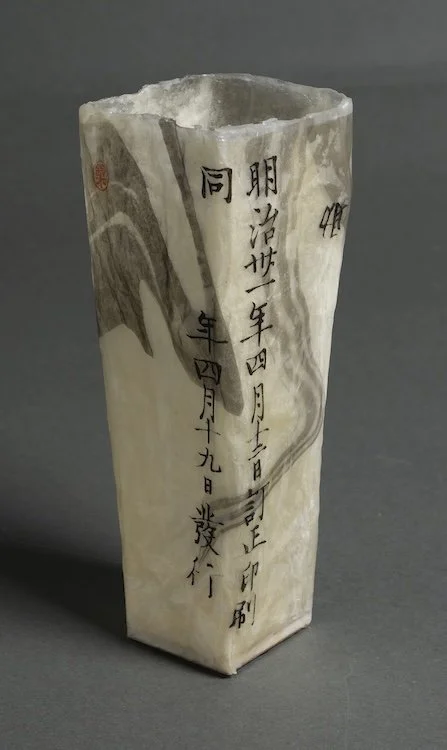 明治卅一年四月十二日訂正印刷
同年四月十九日發行